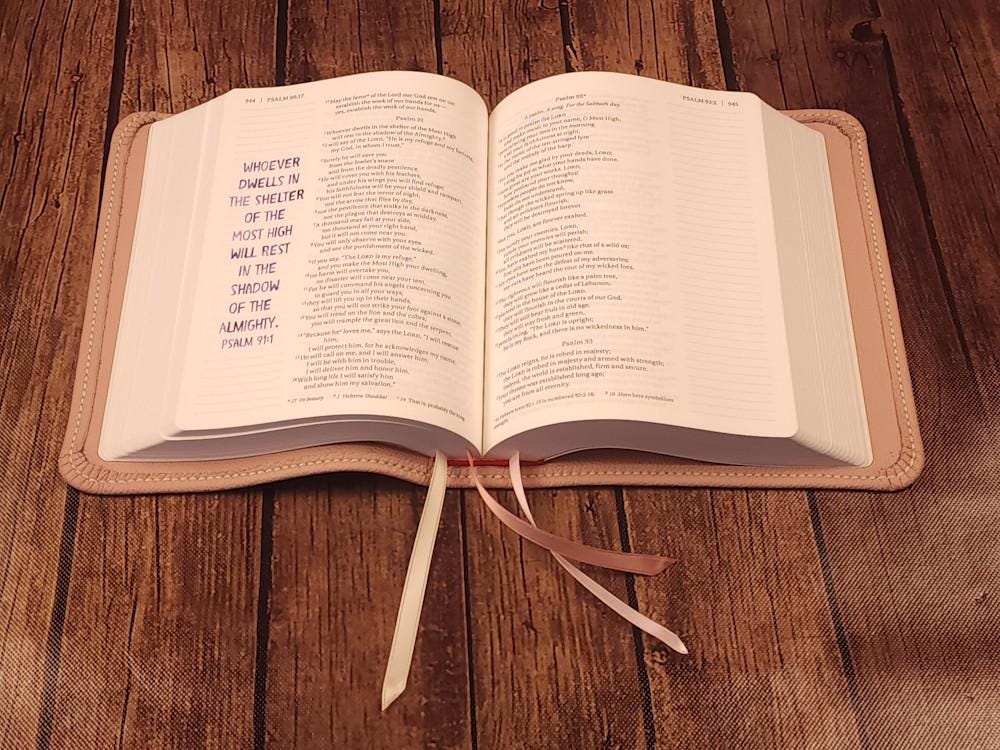 944 | PSALM 90:17
WHOEVER
DWELLS IN
THE SHELTER
OF THE
MOST HIGH
WILL REST
IN THE
SHADOW
OF THE
ALMIGHTY.
PSALM 91:1
17 May the favor* of the Lord our God rest on us;
establish the work of our hands for us—
yes, establish the work of our hands.
Psalm 91
1 Whoever dwells in the shelter of the Most High
will rest in the shadow of the Almighty.*
2 I will say of the LORD, "He is my refuge and my fortress,
my God, in whom I trust."
3 Surely he will save you
from the fowler's snare
and from the deadly pestilence.
4 He will cover you with his feathers,
and under his wings you will find refuge;
his faithfulness will be your shield and rampart.
5 You will not fear the terror of night,
nor the arrow that flies by day,
6 nor the pestilence that stalks in the darkness,
nor the plague that destroys at midday.
7 A thousand may fall at your side,
ten thousand at your right hand,
but it will not come near you.
8 You will only observe with your eyes
and see the punishment of the wicked.
9 If you say, "The LORD is my refuge,"
and you make the Most High your dwelling,
10 no harm will overtake you,
no disaster will come near your tent.
11 For he will command his angels concerning you
to guard you in all your ways;
12 they will lift you up in their hands,
so that you will not strike your foot against a stone.
13 You will tread on the lion and the cobra;
you will trample the great lion and the serpent.
14 "Because he* loves me," says the LORD, "I will rescue
him;
I will protect him, for he acknowledges my name.
15 He will call on me, and I will answer him;
I will be with him in trouble,
I will deliver him and honor him.
16 With long life I will satisfy him
and show him my salvation."
* 17 Or beauty * 1 Hebrew Shaddai * 14 That is, probably the king
PSALM 93:2 | 945
Psalm 92*
A psalm. A song. For the Sabbath day.
is good to praise the LORD
make music to your name, O Most High,
your love in the morning
your faithfulness at night,
the music of the ten-stringed lyre
the melody of the harp.
you make me glad by your deeds, LORD;
sing for joy at what your hands have done.
great are your works, LORD,
profound your thoughts!
Senseless people do not know,
fools do not understand,
that though the wicked spring up like grass
and all evildoers flourish,
they will be destroyed forever.
But you, LORD, are forever exalted.
surely your enemies, LORD,
surely your enemies will perish;
all evildoers will be scattered.
You have exalted my horn* like that of a wild ox;
oils have been poured on me.
My eyes have seen the defeat of my adversaries;
my ears have heard the rout of my wicked foes.
The righteous will flourish like a palm tree,
they will grow like a cedar of Lebanon;
planted in the house of the LORD,
they will flourish in the courts of our God.
They will still bear fruit in old age,
they will stay fresh and green,
proclaiming, "The LORD is upright;
he is my Rock, and there is no wickedness in him."
Psalm 93
The LORD reigns, he is robed in majesty;
the LORD is robed in majesty and armed with strength;
indeed, the world is established, firm and secure.
Your throne was established long ago;
you are from all eternity.
In Hebrew texts 92:1-15 is numbered 92:2-16. * 10 Horn here symbolizes
strength.